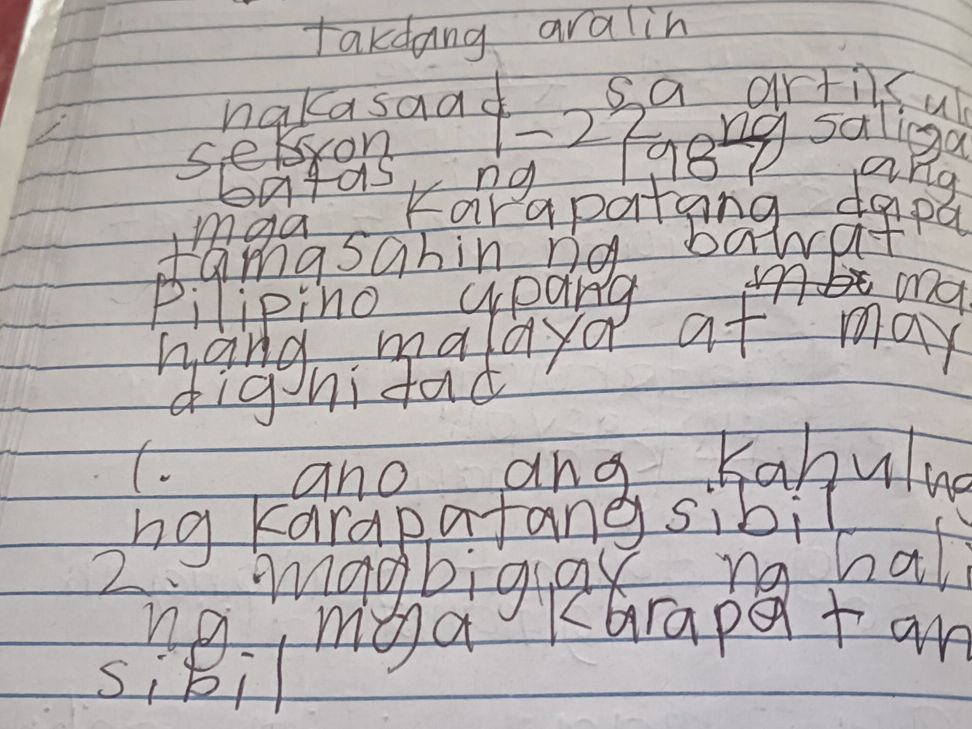 takdang aralin
nakasaad sa artikul
seksyon 1-22 ng saliga
batas ng 1987 ang
mga karapatang dapa
tamasahin ng bawat
Pilipino upang ma
hang malaya at may
dignidad
1. ano ang kahulug
ng karapatang sibil
2. magbigay ng hali
ng mga karapatan
sibil